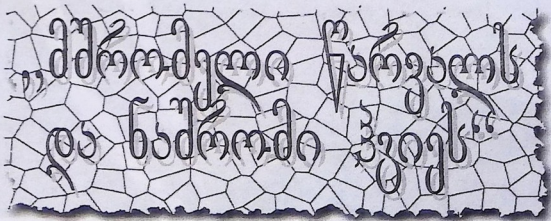 „მშრომელი წარვალს
და ნაშრომი ჰგიეს“